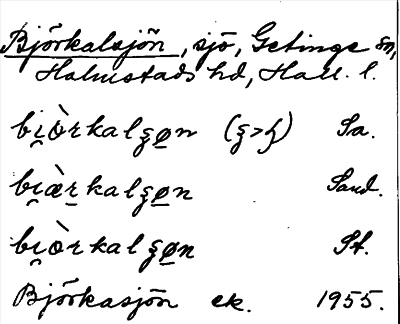 Björkalsjön, sjö, Getinge sn,
Halmstads hd, Hall. l.
bi̯ò̱rkalʂø̱n (ʂ>ɧ) Sa.
bi̯æ̀r̠kalʂø̱n Sand.
bi̯ò̱rkalʂø̱n St.
Björkasjön ek. 1955.